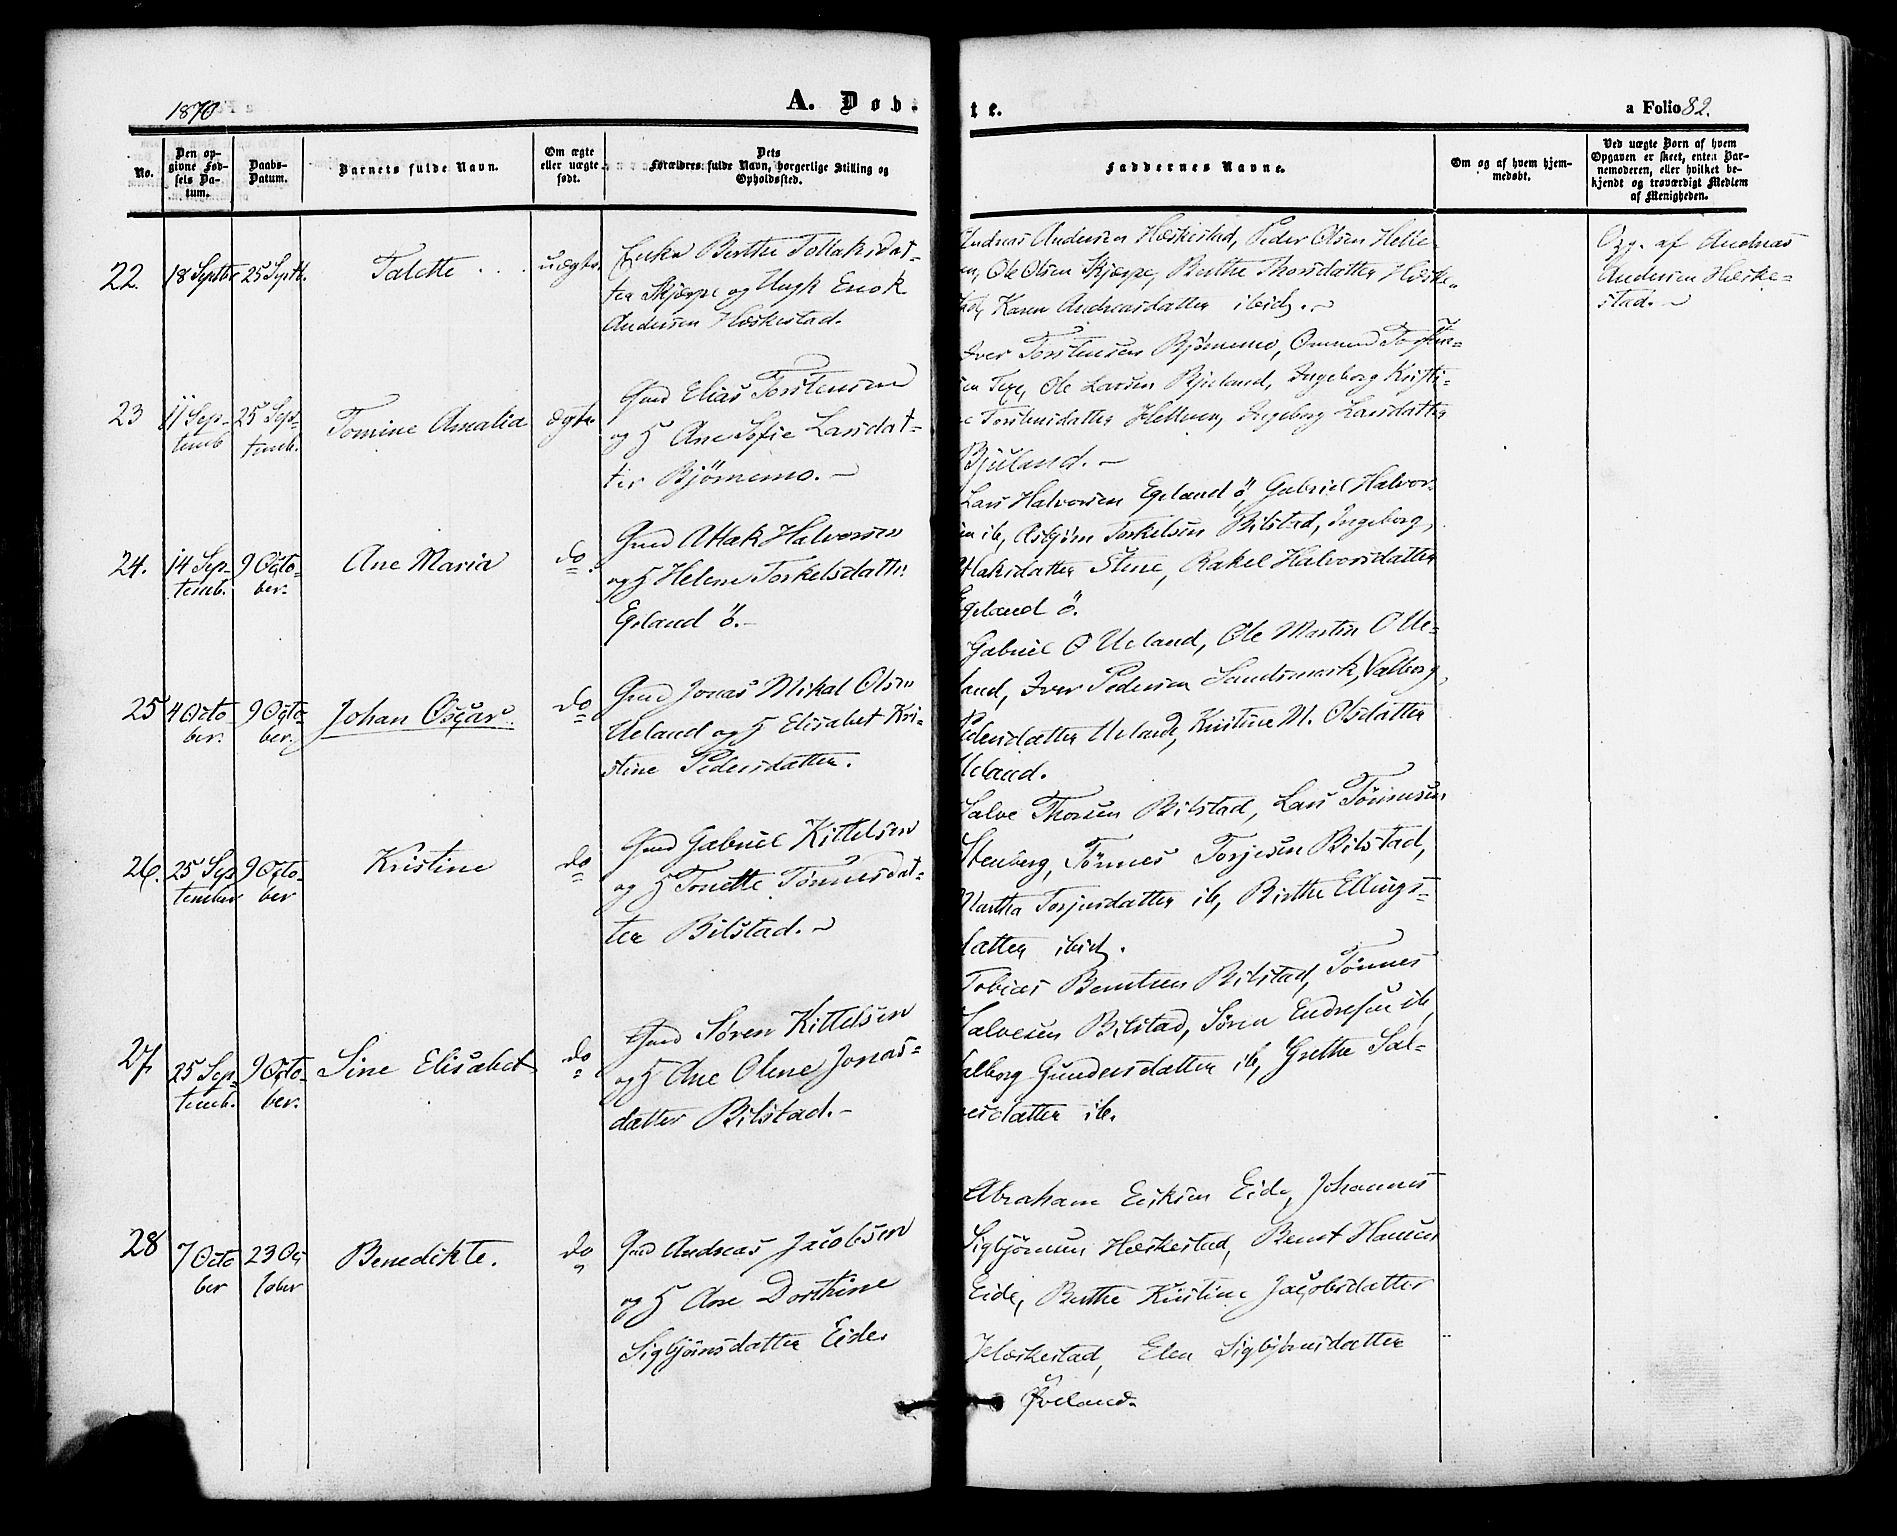 1870
A. Døb.
te.
a Folio 82.
No.
Den op-
givne Fød-
sels Da-
tum.
Daabs-
Datum.
Barnets fulde Navn.
Om ægte
eller uægte
født.
Dets
Forældres fulde Navn, borgerlige Stilling og
Opholdssted.
Faddernes Navne.
Om og af hvem hjem-
medøbt.
Ved uægte Børn af hvem
Opgaven er skeet, enten Bar-
nemoderen, eller hvilket be-
kjendt og troværdigt Medlem
af Menigheden.
22.
18 Septbr
25 Septb.
Talette
uægte
Enke Berthe Tollaksdat-
ter Skjæpe og Ungk Enok
Andersen Hæskestad.
Andreas Andersen Hæskestad, Peder Olsen Helle
Ole Olsen Skjæpe, Berthe Thorsdatter Hæske-
stad, Karen Andreasdatter ibid.
Opg. af Andreas
Andersen Hæske-
stad.
23
11 Sep-
temb
25 Sep-
temb.
Tomine Amalia
ægte
Gmd Elias Torstensen
og H Ane Sofie Larsdat-
ter Bjørnemo.
Iver Torstensen Bjørnemo, Ommund Torsten-
sen Ole Larsen Bjuland, Ingeborg Kristi-
ne Torstensdatter Helleren, Ingeborg Larsdatter
Bjuland.
24.
14 Sep-
temb.
9 Octo-
ber.
Ane Maria
do
Gmd Attak Halvorsen
og H Helene Torkelsdatter
Egeland ö.
Lars Halvorsen Egeland ö, Gabriel Halvor-
sen ib, Asbjørn Torkelsen Bilstad, Ingeborg
Attaksdatter Stene, Rakel Halvorsdatter
Egeland ö.
25
4 Octo
ber.
9 Octo-
ber.
Johan Oscar
do
Gmd Jonas Mikal Olsen
Ueland og H Elisabet Kri-
stine Pedersdatter.
Gabriel O Ueland, Ole Martin O Ue-
land, Iver Pedersen Sandsmark, Valborg
Pedersdatter Ueland, Kristine M. Olsdatter
Ueland.
26.
25 Sep
tember
9 Octo-
ber
Kristine
do
Gmd Gabriel Kittelsen
og H Tonette Tønnesdat-
ter Bilstad.
Salve Thorsen Bilstad, Lars Tønnesen
Stenberg, Tønnes Torjesen Bilstad,
Martha Torjusdatter ib, Birthe Ellings-
datter ibid.
27.
25 Sep-
temb.
9 Octo-
ber.
Sine Elisabet
do
Gmd Søren Kittelsen
og H Ane Olene Jonas-
datter Bilstad.
Tobias Berntsen Bilstad, Tønnes
Salvesen Bilstad, Søren Endresen ib,
Valborg Gundersdatter ib, Grethe Sal-
vesdatter ib.
28
7 Octo
ber
23 Oc
tober
Benedikte.
do
Gmd Andreas Jacobsen
og H Ane Dorthine
Sigbjørnsdatter Eide
Abraham Eriksen Eide, Johannes
Sigbjørnsen Hæskestad, Bernt Hansen
Eide, Berthe Kristine Jacobsdatter
Hæskestad, Elen Sigbjørnsdatter
Øveland.